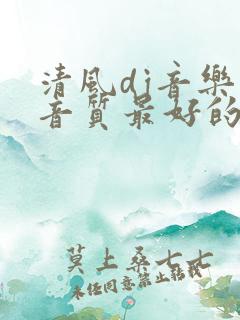 清风dj音乐
音质最好的
莫上桑七七
未经同意禁止转载